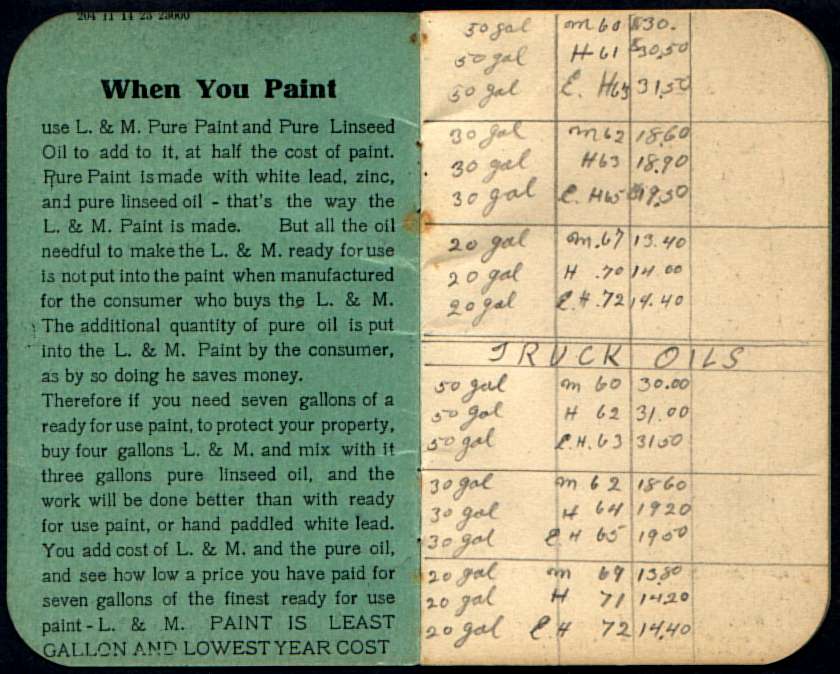 204 11 14 23 23000
When You Paint
use L. & M. Pure Paint and Pure Linseed
Oil to add to it, at half the cost of paint.
Pure Paint is made with white lead, zinc,
and pure linseed oil - that's the way the
L. & M. Paint is made. But all the oil
needful to make the L. & M. ready for use
is not put into the paint when manufactured
for the consumer who buys the L. & M.
The additional quantity of pure oil is put
into the L. & M. Paint by the consumer,
as by so doing he saves money.
Therefore if you need seven gallons of a
ready for use paint, to protect your property,
buy four gallons L. & M. and mix with it
three gallons pure linseed oil, and the
work will be done better than with ready
for use paint, or hand paddled white lead.
You add cost of L. & M. and the pure oil,
and see how low a price you have paid for
seven gallons of the finest ready for use
paint - L. & M. PAINT IS LEAST
GALLON AND LOWEST YEAR COST
50 gal m 60 $30.
50 gal H 61 $30.50
50 gal E. H 63 31.50
30 gal m 62 18.60
30 gal H 63 18.90
30 gal E. H 65 $19.50
20 gal m .67 13.40
20 gal H .70 14 00
20 gal E.H .72 14.40
TRUCK OILS
50 gal m 60 30.00
50 gal H 62 31.00
50 gal E.H. 63 31 50
30 gal m 62 18 60
30 gal H 64 19 20
30 gal E H 65 19 50
20 gal m 69 13 80
20 gal H 71 14.20
20 gal E H 72 14.40